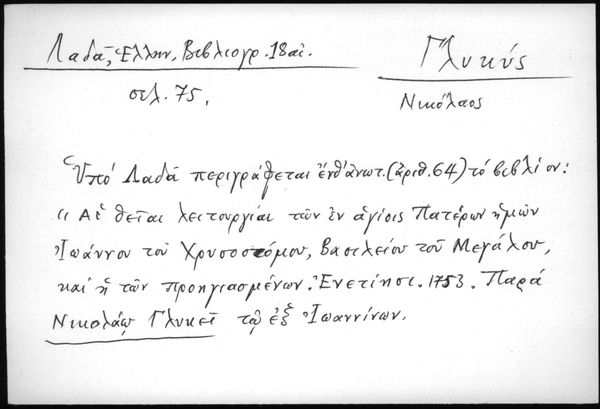 Λαδᾶ, Ἑλλην. Βιβλιογρ. 18 αἰ.
σελ. 75.
Γλυκύς
Νικόλαος
Ὑπό Λαδᾶ περιγράφεται ἔνθ' ἀνωτ. (ἀριθ. 64) τό βιβλίον:
"Αἱ θεῖαι λειτουργίαι τῶν ἐν ἁγίοις Πατέρων ἡμῶν
Ἰωάννου τοῦ Χρυσοστόμου, Βασιλείου τοῦ Μεγάλου,
καί ἡ τῶν προηγιασμένων. Ἐνετίησι. 1753. Παρά
Νικολάῳ Γλυκεῖ τῷ ἐξ Ἰωαννίνων.